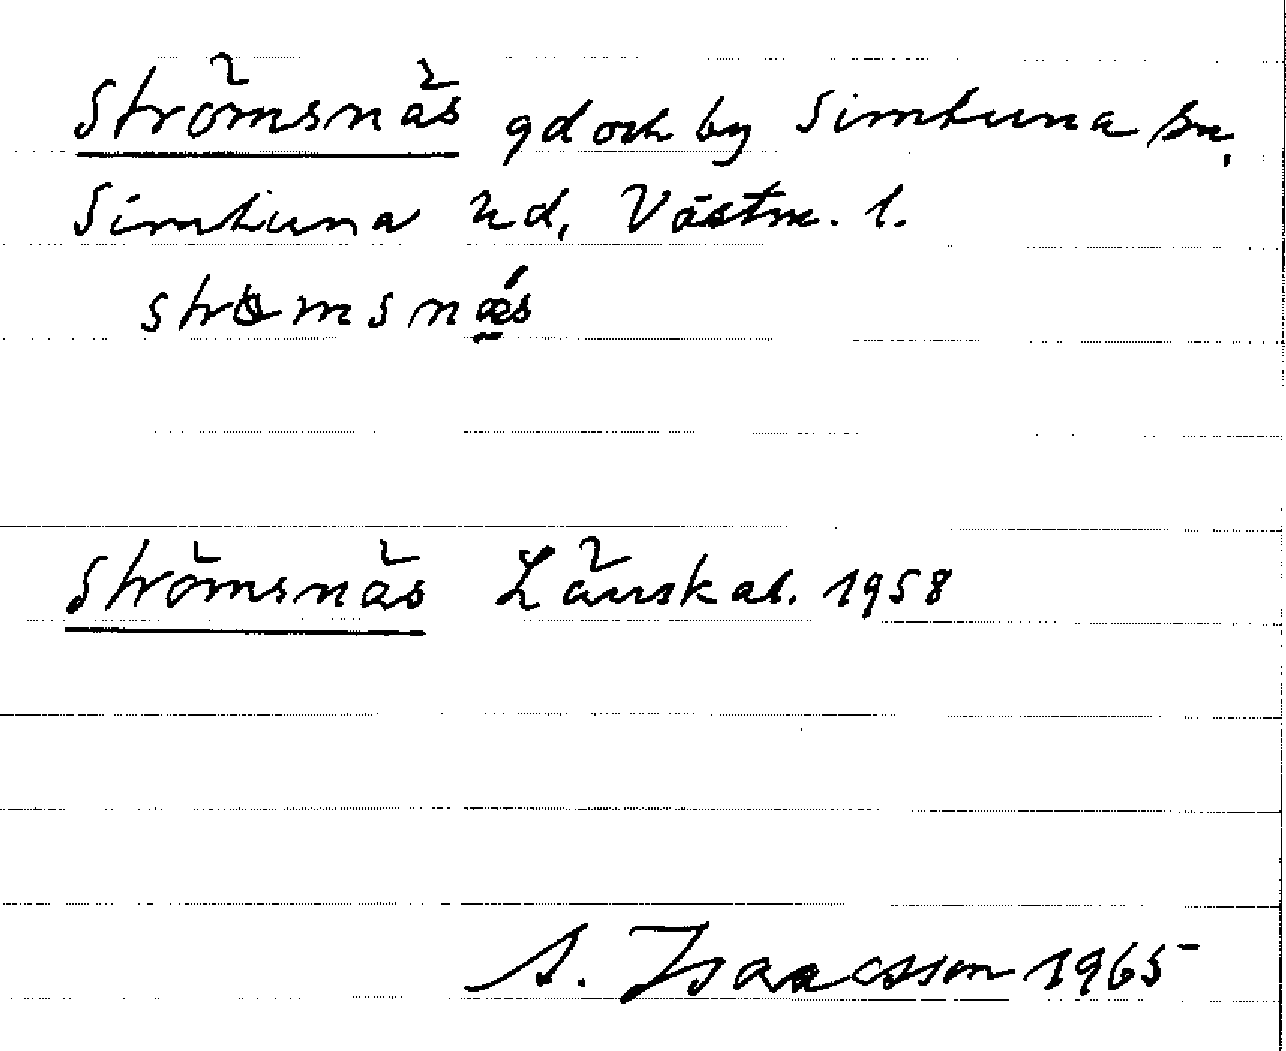 Strömsnäs gd och by Simtuna sn,
Simtuna hd, Västm. l.
strömsnǽs
Strömsnäs Länskal. 1958
A. Isaacsson 1965